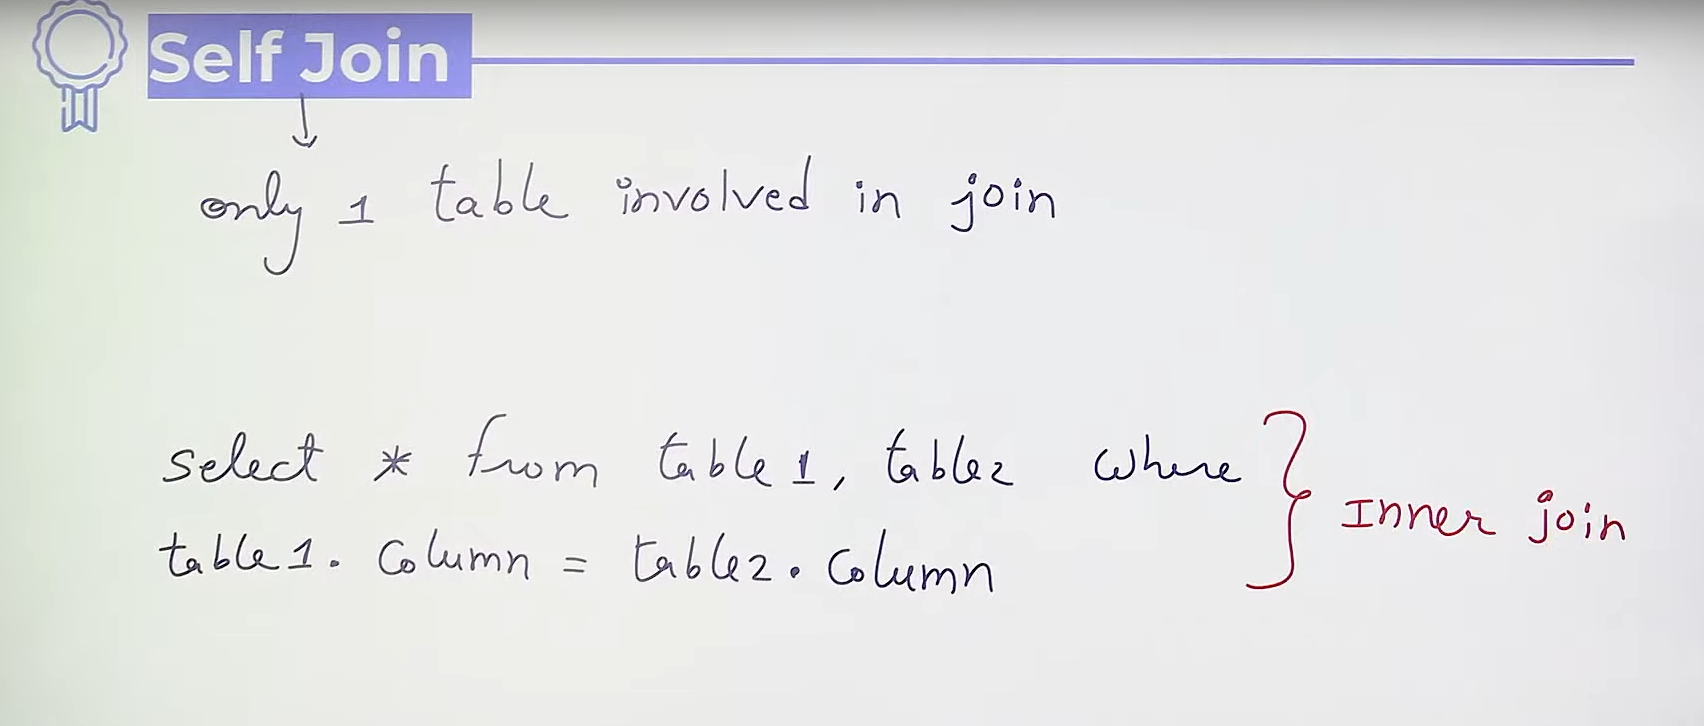 Self Join
only 1 table involved in join
select * from table1, table2 where
table1. Column = table2. Column
Inner join